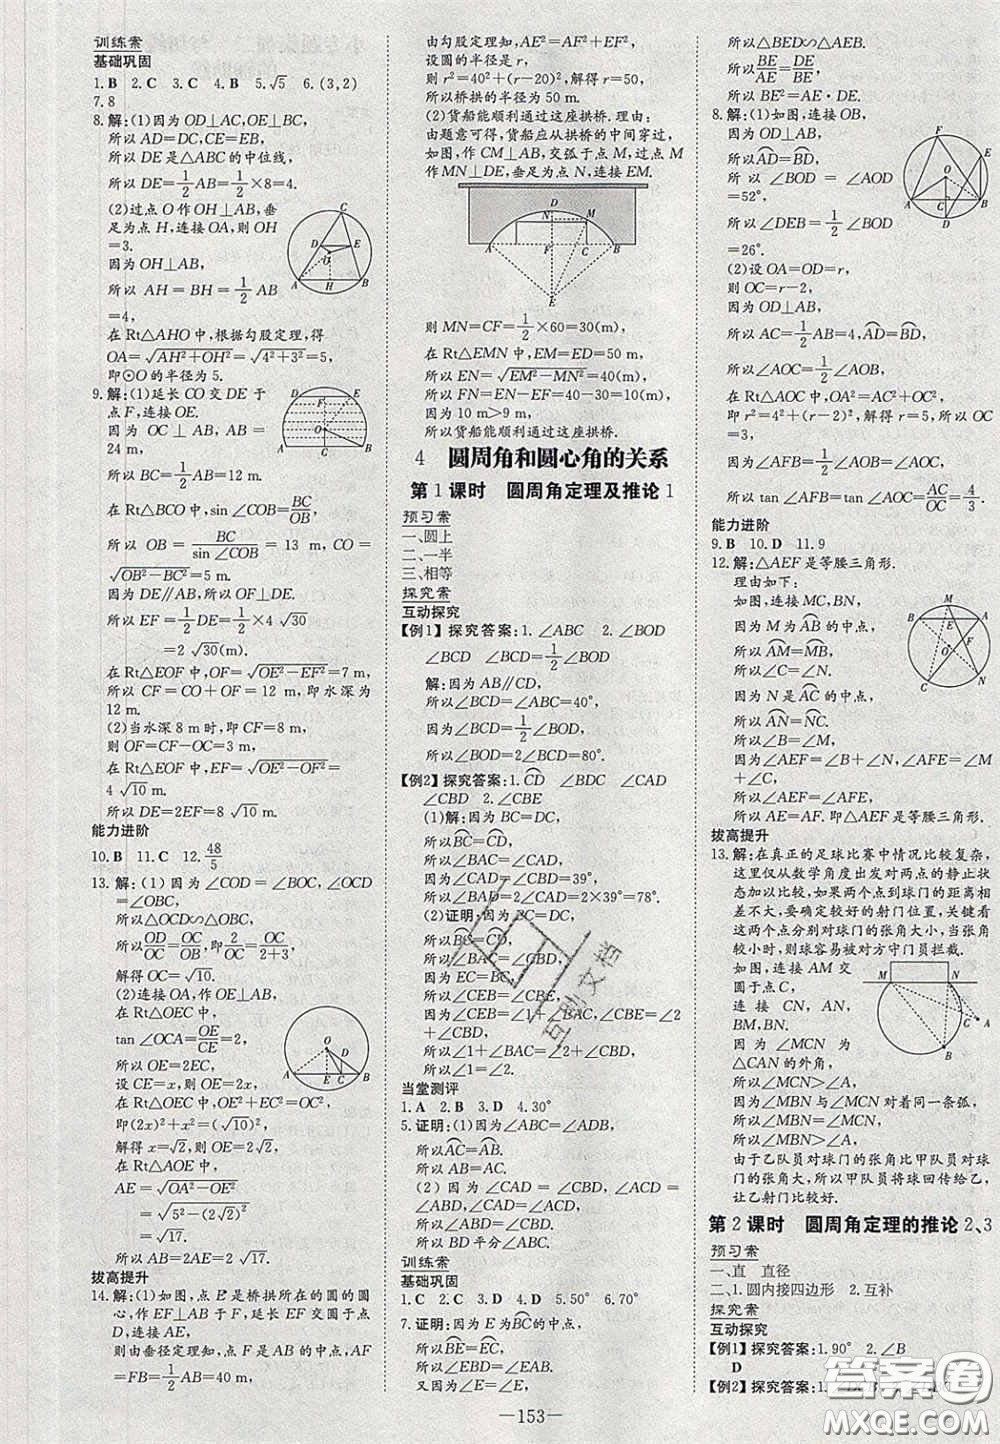 训练案
基础巩固
1. B　2. C　3. C　4. B　5.√5　6.(3,2)
7.8
8.解:(1)因为 OD⊥AC,OE⊥BC,
所以 AD=DC,CE=EB,
所以 DE 是△ABC 的中位线,
所以 DE=1/2 AB=1/2×8=4.
(2)过点 O 作 OH⊥AB,垂
足为点 H,连接 OA,则 OH
=3.
因为 OH⊥AB,
所以 AH=BH=1/2 AB
=4,
在 Rt△AHO 中,根据勾股定理,得
OA=√(AH²+OH²)=√(4²+3²)=5,
即⊙O 的半径为 5.
9.解:(1)延长 CO 交 DE 于
点 F,连接 OE.
因为 OC⊥AB, AB=
24 m,
所以 BC=1/2 AB=12 m.
在 Rt△BCO 中,sin∠COB=BC/OB,
所以 OB=BC/sin∠COB=13 m, CO=
√(OB²-BC²)=5 m.
因为 DE∥AB,所以 OF⊥DE.
所以 EF=1/2 DE=1/2×4√30
=2√30(m).
在 Rt△OEF 中,OF=√(OE²-EF²)=7 m,
所以 CF=CO+OF=12 m,即水深为
12 m.
(2)当水深 8 m 时,即 CF=8 m,
则 OF=CF-OC=3 m,
在 Rt△EOF 中,EF=√(OE²-OF²)=
4√10 m.
所以 DE=2EF=8√10 m.
能力进阶
10. B　11. C　12. 48/5
13.解:(1)因为∠COD=∠BOC,∠OCD
=∠OBC,
所以△OCD∽△OBC,
所以 OD/OC=OC/OB,即 2/OC=OC/(2+3),
解得 OC=√10.
(2)连接 OA,作 OE⊥AB,
在 Rt△OEC 中,
tan∠OCA=OE/CE=2,
所以 OE=2EC,
设 CE=x,则 OE=2x.
在 Rt△OEC 中,OE²+EC²=OC²,
即(2x)²+x²=(√10)²,
解得 x=√2,则 OE=2√2,
在 Rt△AOE 中,
AE=√(OA²-OE²)
=√(5²-(2√2)²)
=√17.
所以 AB=2AE=2√17.
拔高提升
14.解:(1)如图,点 E 是桥拱所在的圆的圆
心,作 EF⊥AB 于 F,延长 EF 交圆于点
D,连接 AE,
则由垂径定理知,点 F 是 AB 的中点,AF
=FB=1/2 AB=40 m,
由勾股定理知,AE²=AF²+EF²,
设圆的半径是 r m,
则 r²=40²+(r-20)²,解得 r=50,
所以桥拱的半径为 50 m.
(2)货船能顺利通过这座拱桥.理由:
由题意可得,货船应从拱桥的中间穿过,
如图,作 CM⊥AB,交弧于点 M,过点 M
作 MN⊥DE,垂足为点 N,连接 EM.
则 MN=CF=1/2×60=30(m),
在 Rt△EMN 中,EM=ED=50 m,
所以 EN=√(EM²-MN²)=40(m),
所以 FN=EN-EF=40-30=10(m),
因为 10 m>9 m,
所以货船能顺利通过这座拱桥.
4　圆周角和圆心角的关系
第 1 课时　圆周角定理及推论 1
预习案
一、圆上
二、一半
三、相等
探究案
互动探究
【例1】探究答案:1.∠ABC　2.∠BOD
∠BCD　∠BCD=1/2∠BOD
解:因为 AB∥CD,
所以∠BCD=∠ABC=40°.
因为∠BCD=1/2∠BOD,
所以∠BOD=2∠BCD=80°.
【例2】探究答案:1.CD　∠BDC　∠CAD
∠CBD　2.∠CBE
(1)解:因为 BC=DC,
所以 BC=CD,
所以∠BAC=∠CAD,
因为∠CAD=∠CBD=39°,
所以∠BAD=2∠CAD=2×39°=78°.
(2)证明:因为 BC=DC,
所以 BC=CD,
所以∠BAC=∠CBD,
因为 EC=BC=DC,
所以∠CEB=∠CBE,
因为∠CEB=∠2+∠BAC,
∠CBE=∠1+∠CBD,
所以∠1+∠BAC=∠2+∠CBD,
所以∠1=∠2.
当堂测评
1. A　2. B　3. D　4. 30°
5.证明:(1)因为∠ABC=∠ADB,
所以 AC=AB.
所以 AB=AC.
(2)因为∠CAD=∠CBD,∠CAD=
2∠ADB=2∠ABC,
所以∠CBD=2∠ABC,
所以 BD 平分∠ABC.
训练案
基础巩固
1. C　2. C　3. D　4. D　5. 50°　6. 70°
7.证明:因为 E 为 BC 的中点,
所以 BE=EC,
所以∠EBD=∠EAB.
又因为∠E=∠E,
所以△BED∽△AEB.
所以 BE/AE=DE/BE,
所以 BE²=AE·DE.
8.解:(1)如图,连接 OB,
因为 OD⊥AB,
所以 AD=BD,
所以∠BOD=∠AOD
=52°,
所以∠DEB=1/2∠BOD
=26°.
(2)设 OA=OD=r,
则 OC=r-2,
因为 OD⊥AB,
所以 AC=1/2 AB=4,AD=BD,
所以∠AOC=∠AFB,
在 Rt△AOC 中,OA²=AC²+OC²,
即 r²=4²+(r-2)²,解得 r=5,所以 OC
=3,
因为∠AFB=∠AOC,
所以 tan∠AFB=AC/OC=4/3.
能力进阶
9. B　10. D　11. 9
12.解:△AEF 是等腰三角形.
理由如下:
如图,连接 MC,BN,
因为 M 为 AB 的中点,
所以 AM=MB,
所以∠C=∠N.
因为 N 是 AC 的中点,
所以 AN=NC.
所以∠B=∠M.
因为∠AEF=∠B+∠N,∠AFE=∠M
+∠C,
所以∠AEF=∠AFE,
所以 AE=AF.即△AEF 是等腰三角形.
拔高提升
13.解:在真正的足球比赛中情况比较复杂,
这里仅从数学角度出发对两点的静止状
态加以比较,如果两个点到球门的距离相
差不大,要确定较好的射门位置,关键看
这两个点分别对球门的张角大小,当张角
较小时,则球容易被对方守门员拦截.
如图,连接 AM 交
圆于点 C,
连接 CN, AN,
BM,BN.
因为∠MCN 为
△CAN 的外角,
所以∠MCN>∠A.
因为∠MBN 与∠MCN 对着同一条弧,
所以∠MBN=∠MCN,
所以∠MBN>∠A.
由于乙队员对球门的张角比甲队员对球
门的张角大,所以甲队员将球回传给乙,
让乙射门比较好.
第 2 课时　圆周角定理的推论 2、3
预习案
一、直　直径
二、1.圆内接四边形　2.互补
探究案
互动探究
【例1】探究答案:1. 90°　2.∠A　∠B
D
【例2】探究答案:1.
—153—
互动文档
答案圈
MXQE.COM